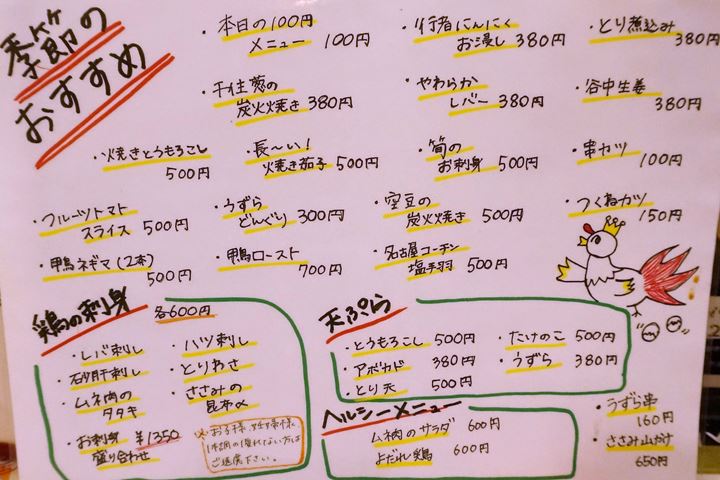 季節の
おすすめ
・本日の100円
メニュー 100円
・行者にんにく
お浸し 380円
・とり煮込み
380円
・千住葱の
炭火焼き 380円
・やわらか
レバー 380円
・谷中生姜
380円
・焼きとうもろこし
500円
・長〜い!
焼き茄子 500円
・筍の
お刺身 500円
・串カツ
100円
・フルーツトマト
スライス 500円
・うずら
どんぐり 300円
・空豆の
炭火焼き 500円
・つくねカツ
150円
・甲鳥ネギマ(2本)
500円
・鴨ロースト
700円
・名古屋コーチン
塩手羽 500円
鶏の刺身 各600円
・レバ刺し
・ハツ刺し
・砂肝刺し
・とりわさ
・ムネ肉の
タタキ
・ささみの
昆布〆
・お刺身 ¥1350
盛り合わせ
※お子様、妊婦様、
体調の優れない方は
ご遠慮下さい。
天ぷら
・とうもろこし 500円
・たけのこ 500円
・アボカド 380円
・うずら 380円
・とり天 500円
ヘルシーメニュー
ムネ肉のサラダ 600円
よだれ鶏 600円
・うずら串
160円
・ささみ山かけ
650円